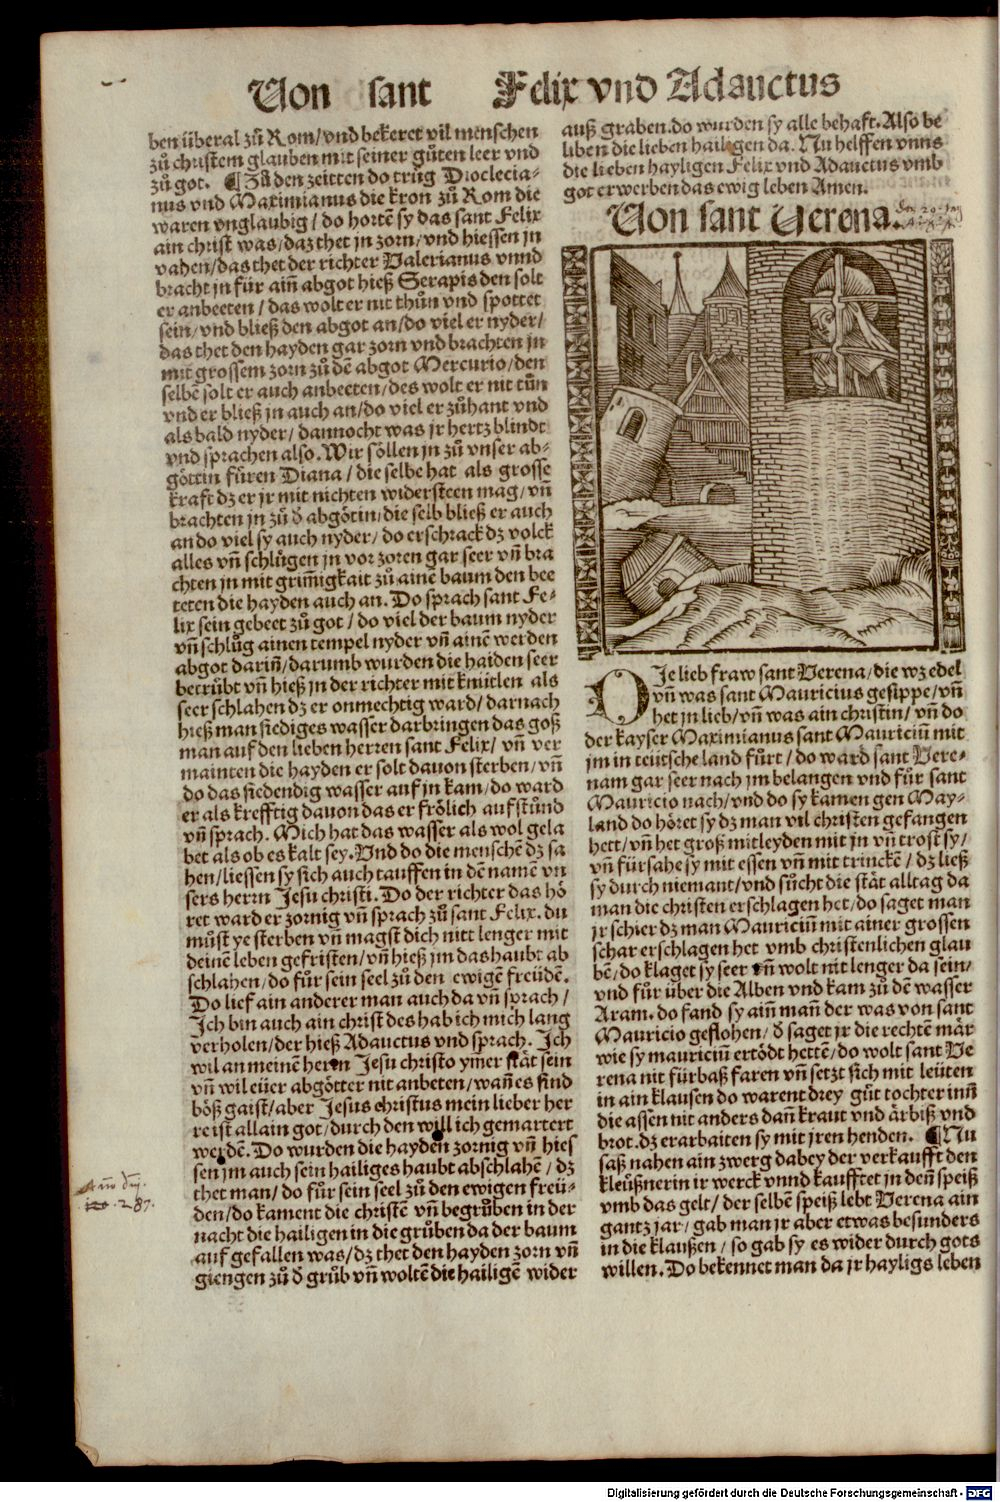 Von sant Felix vnd Adauctus
ben überal zů Rom/vnd bekeret vil menschen
zů christem glauben mit seiner gůten leer vnd
zů got. ¶ Zů den zeitten do trůg Dioclecia-
nus vnd Maximianus die kron zů Rom die
waren vnglaubig/do hortẽ sy das sant Felix
ain christ was/daz thet jn zorn/vnd hiessen jn
vahen/das thet der richter Valerianus vnnd
bracht jn für ain̄ abgot hieß Serapis den solt
er anbeeten/das wolt er nit thůn vnd spottet
sein/vnd bließ den abgot an/do viel er nyder/
das thet den hayden gar zorn vnd brachten jn
mit grossem zorn zů dẽ abgot Mercurio/den
selbẽ solt er auch anbeeten/des wolt er nit tůn
vnd er bließ jn auch an/do viel er zůhant vnd
als bald nyder/dannocht was jr hertz blindt
vnd sprachen also. Wir söllen jn zů vnser ab-
göttin füren Diana/die selbe hat als grosse
kraft dz er jr mit nichten widersteen mag/vn̄
brachten jn zů d̕ abgötin/die selb bließ er auch
an do viel sy auch nyder/do erschrack dz volck
alles vn̄ schlůgen jn vor zoren gar seer vn̄ bra
chten jn mit grim̄igkait zů ainẽ baum den bee
teten die hayden auch an. Do sprach sant Fe-
lix sein gebeet zů got/do viel der baum nyder
vn̄ schlůg ainen tempel nyder vn̄ ainẽ werden
abgot darin̄/darumb wurden die haiden seer
betrůbt vn̄ hieß jn der richter mit knütlen als
seer schlahen dz er onmechtig ward/darnach
hieß man siediges wasser darbringen das goß
man auf den lieben herren sant Felix/vn̄ ver
mainten die hayden er solt dauon sterben/vn̄
do das siedendig wasser auf jn kam/do ward
er als krefftig dauon das er frölich aufstůnd
vn̄ sprach. Mich hat das wasser als wol gela
bet als ob es kalt sey. Vnd do die menschẽ dz sa
hen/liessen sy sich auch tauffen in dẽ namẽ vn
sers herrn Jesu christi. Do der richter das hö
ret ward er zornig vn̄ sprach zů sant Felix. du
můst ye sterben vn̄ magst dich nitt lenger mit
deinẽ leben gefristen/vn̄ hieß jm das haubt ab
schlahen/do fůr sein seel zů den ewigen freüdẽ.
Do lief ain anderer man auch da vn̄ sprach/
Ich bin auch ain christ des hab ich mich lang
verholen/der hieß Adauctus vnd sprach. Ich
wil an meinẽ heren Jesu christo ym̄er stät sein
vn̄ wil eüer abgötter nit anbeten/wan̄ es sind
böß gaist/aber Jesus christus mein lieber her
re ist allain got/durch den will ich gemartert
werdẽ. Do wurden die hayden zornig vn̄ hies
sen jm auch sein hailiges haubt abschlahẽ/dz
thet man/do fůr sein seel zů den ewigen freü-
den/do kament die christẽ vn̄ begrůben in der
nacht die hailigen in die grůben da der baum
auf gefallen was/dz thet den hayden zorn vn̄
giengen zů d̕ grůb vn̄ woltẽ die hailigẽ wider
287.
auß graben. do wurden sy alle behaft. Also be
liben die lieben hailigen da. Nu helffen vnns
die lieben hayligen Felix vnd Adauctus vmb
got erwerben das ewig leben Amen.
Von sant Verena.
DIe lieb fraw sant Verena/die wz edel
vn̄ was sant Mauricius gesippe/vn̄
het jn lieb/vn̄ was ain christin/vn̄ do
der kayser Maximianus sant Mauriciū mit
jm in teütsche land fůrt/do ward sant Vere-
nam gar seer nach jm belangen vnd fůr sant
Mauricio nach/vnd do sy kamen gen May-
land do höret sy dz man vil christen gefangen
hett/vn̄ het groß mitleyden mit jn vn̄ trost sy/
vn̄ fürsahe sy mit essen vn̄ mit trinckẽ/dz ließ
sy durch niemant/vnd sůcht die stät alltag da
man die christen erschlagen het/do saget man
jr schier dz man Mauriciū mit ainer grossen
schar erschlagen het vmb christenlichen glau
bẽ/do klaget sy seer vn̄ wolt nit lenger da sein/
vnd fůr über die Alben vnd kam zů dẽ wasser
Aram. do fand sy ain̄ man̄ der was von sant
Mauricio geflohen/d̕ saget jr die rechtẽ mär
wie sy mauriciū ertödt hettẽ/do wolt sant Ve
rena nit fürbaß faren vn̄ setzt sich mit leüten
in ain klausen do warent drey gůt tochter inn̄
die assen nit anders dan̄ kraut vnd ärbiß vnd
brot. dz erarbaiten sy mit jren henden. ¶ Nu
saß nahen ain zwerg dabey der verkaufft den
kleüßnerin ir werck vnnd kaufftet jn den̄ speiß
vmb das gelt/der selbẽ speiß lebt Verena ain
gantz jar/gab man jr aber etwas besunders
in die klaußen/so gab sy es wider durch gots
willen. Do bekennet man da jr hayligs leben
Digitalisierung gefördert durch die Deutsche Forschungsgemeinschaft - DFG